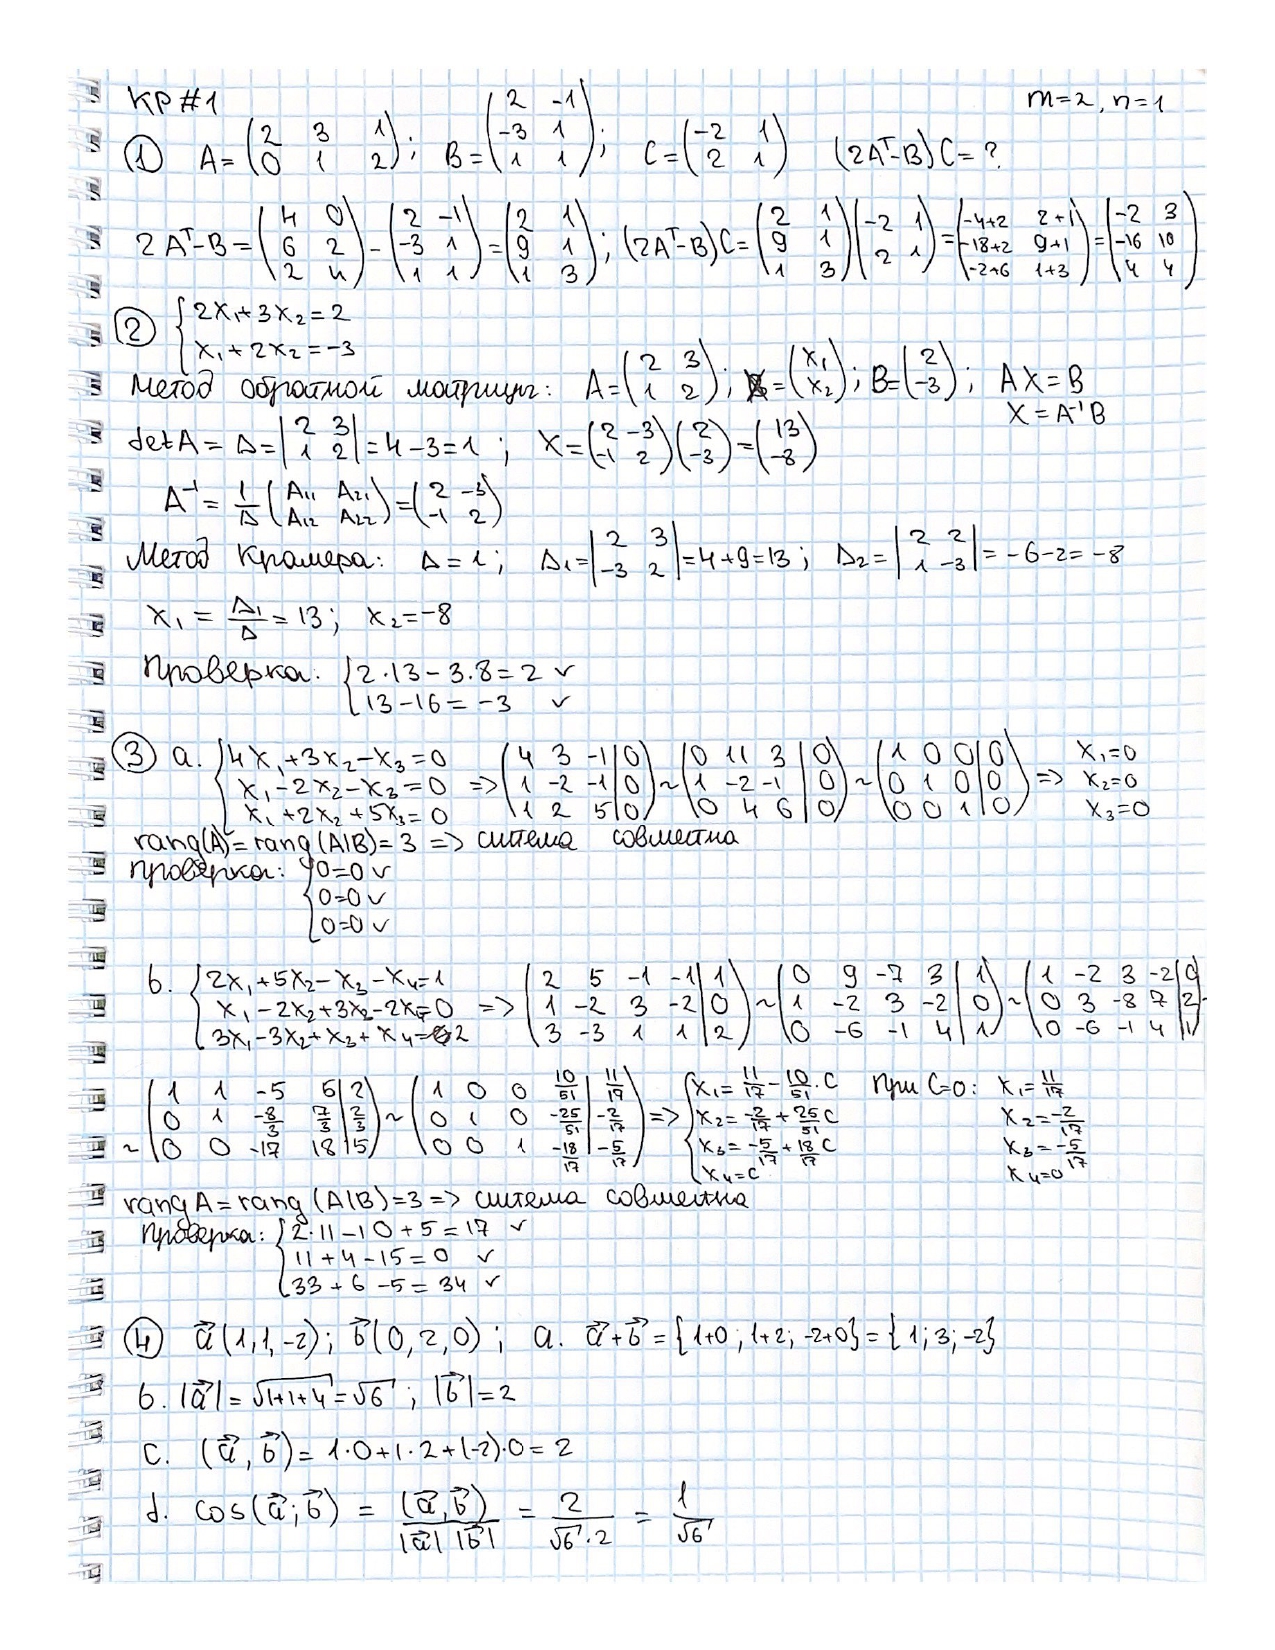 КР #1 m=2, n=1
① A = (2 3 1; 0 1 2); B = (2 -1; -3 1; 1 1); C = (-2 1; 2 1) (2Aᵀ-B)C = ?
2Aᵀ-B = (4 0; 6 2; 2 4) - (2 -1; -3 1; 1 1) = (2 1; 9 1; 1 3); (2Aᵀ-B)C = (2 1; 9 1; 1 3)(-2 1; 2 1) = (-4+2 2+1; -18+2 9+1; -2+6 1+3) = (-2 3; -16 10; 4 4)
② {2x₁+3x₂=2
x₁+2x₂=-3
Метод обратной матрицы: A = (2 3; 1 2); X = (x₁; x₂); B = (2; -3); AX = B
X = A⁻¹B
det A = Δ = |2 3; 1 2| = 4-3 = 1; X = (2 -3; -1 2)(2; -3) = (13; -8)
A⁻¹ = 1/Δ (A₁₁ A₂₁; A₁₂ A₂₂) = (2 -3; -1 2)
Метод Крамера: Δ = 1; Δ₁ = |2 3; -3 2| = 4+9 = 13; Δ₂ = |2 2; 1 -3| = -6-2 = -8
x₁ = Δ₁/Δ = 13; x₂ = -8
Проверка: {2·13 - 3·8 = 2 ✓
13-16 = -3 ✓
③ a. {4x₁+3x₂-x₃=0
x₁-2x₂-x₃=0
x₁+2x₂+5x₃=0
=> (4 3 -1|0; 1 -2 -1|0; 1 2 5|0) ~ (0 11 3|0; 1 -2 -1|0; 0 4 6|0) ~ (1 0 0|0; 0 1 0|0; 0 0 1|0) => x₁=0
x₂=0
x₃=0
rang(A) = rang(A|B) = 3 => система совместна
Проверка: {0=0 ✓
0=0 ✓
0=0 ✓
b. {2x₁+5x₂-x₃-x₄=1
x₁-2x₂+3x₃-2x₄=0
3x₁-3x₂+x₃+x₄=2
=> (2 5 -1 -1|1; 1 -2 3 -2|0; 3 -3 1 1|2) ~ (0 9 -7 3|1; 1 -2 3 -2|0; 0 -6 -1 4|1) ~ (1 -2 3 -2|0; 0 3 -8 7|2; 0 -6 -1 4|1) ~
~ (1 1 -5 5|2; 0 1 -8/3 7/3|2/3; 0 0 -17 18|5) ~ (1 0 0 10/51|11/19; 0 1 0 -25/51|-2/17; 0 0 1 -18/17|-5/17) => {x₁ = 11/17 - 10/51·C
x₂ = -2/17 + 25/51 C
x₃ = -5/17 + 18/17 C
x₄ = C
При C=0: x₁ = 11/17
x₂ = -2/17
x₃ = -5/17
x₄ = 0
rang A = rang (A|B) = 3 => система совместна
Проверка: {2·11-10+5 = 17 ✓
11+4-15 = 0 ✓
33+6-5 = 34 ✓
④ a⃗(1,1,-2); b⃗(0,2,0); a. a⃗+b⃗ = {1+0; 1+2; -2+0} = {1; 3; -2}
b. |a⃗| = √1+1+4 = √6; |b⃗| = 2
c. (a⃗, b⃗) = 1·0+1·2+(-2)·0 = 2
d. cos(a⃗; b⃗) = (a⃗, b⃗)/|a⃗| |b⃗| = 2/√6·2 = 1/√6